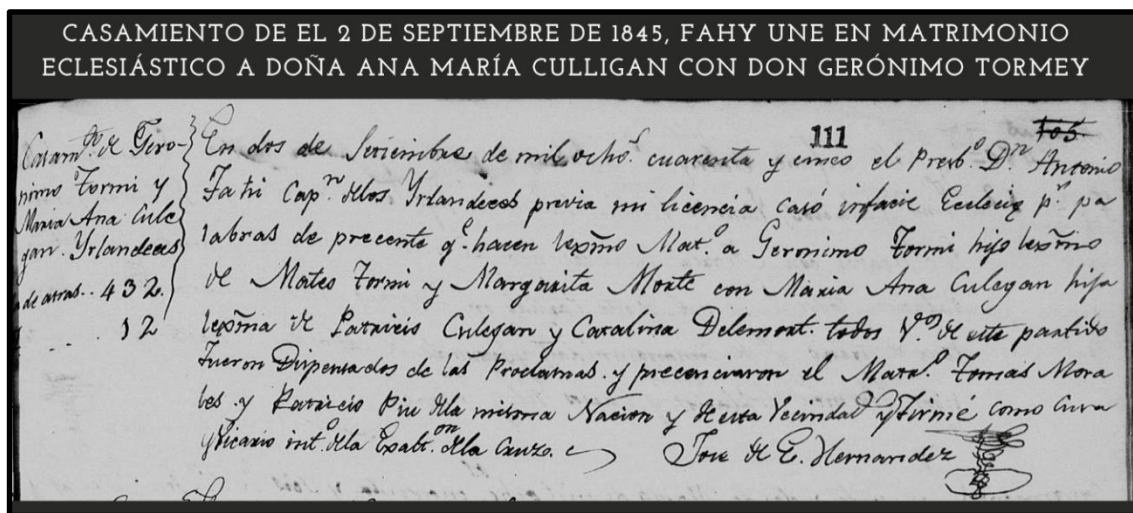 CASAMIENTO DE EL 2 DE SEPTIEMBRE DE 1845, FAHY UNE EN MATRIMONIO
ECLESIÁSTICO A DOÑA ANA MARÍA CULLIGAN CON DON GERÓNIMO TORMEY
111
105
Casam.to de Gero-
nimo Tormi y
Maria Ana Cule
gan. Yrlandeces
de atras.. 432.
12
En dos de Setiembre de mil ocho.s cuarenta y cinco el Presb.o D.n Antonio
Fahi Cap.n de los Yrlandeces previa mi licencia casó infacie Eccleciæ p.r pa
labras de precente q.e hacen lexmo Mat.o a Geronimo Tormi hijo lexmo
de Mateo Tormi y Margarita Monte con Maria Ana Culegan hija
lexma de Patricis Culegan y Catalina Delemont. todos V.os de este partido
Fueron Dispensados de las Proclamas. y precenciaron el Matr.o Tomas Mora
les y Patricio de la misma Nacion y de esta Vecindad y Firmé como Cura
y Vicario int.o de la Exalt.on de la Cruz.
Jose de E. Hernandez